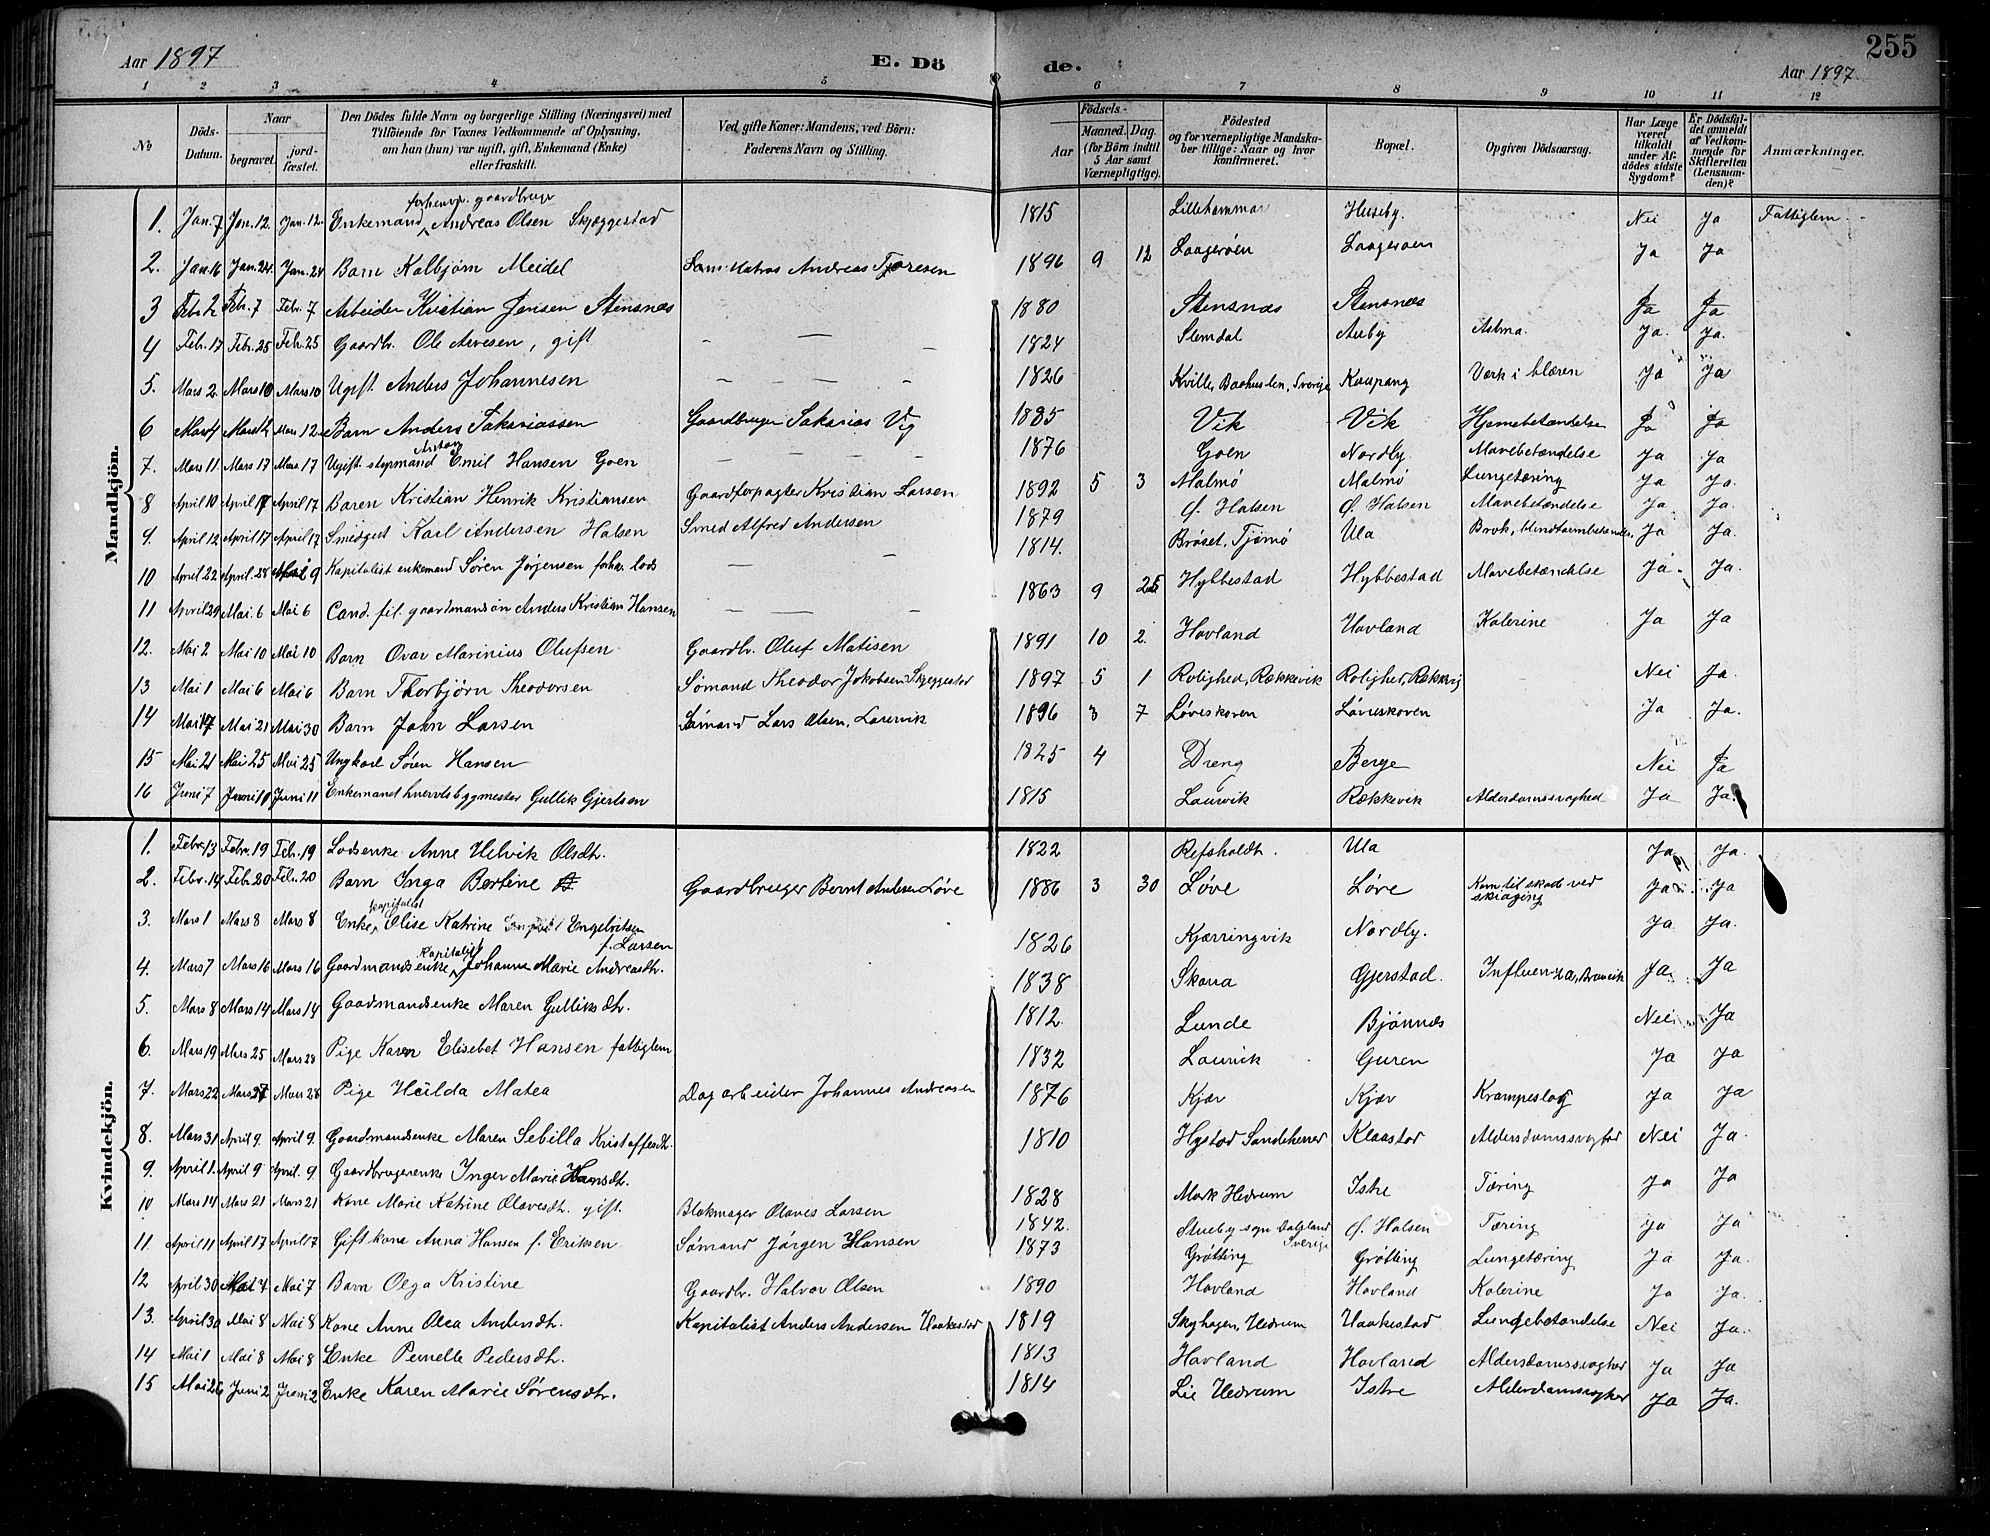 Aar 1897
E. Dö
de.
Aar 1897
255
1 2 3 4 5 6 7 8 9 10 11 12
No
Döds-Datum.
Naar
begravet.
jord-fæstet.
Den Dödes fulde Navn og borgerlige Stilling (Næringsvei) med
Tilföiende for Voxnes Vedkommende af Oplysning,
om han (hun) var ugift, gift, Enkemand (Enke)
eller fraskilt.
Ved gifte Koner: Mandens, ved Börn:
Faderens Navn og Stilling.
Födsels-
Aar
Maaned. Dag.
(for Börn indtil
5 Aar samt
Værnepligtige).
Födested
og for værnepligtige Mandska-
ber tillige: Naar og hvor
konfirmeret.
Bopæl.
Opgiven Dödsaarsag.
Har Læge
været
tilkaldt
under Af-
dödes sidste
Sygdom?
Er Dödsfal-
det anmeldt
af Vedkom-
mende for
Skifteretten
(Lensman-
den)?
Anmærkninger.
Mandkjön.
forhenv. gaardbruger
1. Jan. 7 Jan. 12. Jan. 12. Enkemand Andreas Olsen Skjeggestad 1815 Lillehammer Huseby. Nei Ja Fattiglem
2. Jan. 16 Jan. 24. Jan. 24 Barn Kolbjørn Meidel Andreas 1896 9 12 Laagerøen Laagerøen Ja Ja
3 Febr. 2 Febr. 7 Febr. 7 Arbeider Kristian Jensen Stensnæs 1880 Stensnæs Stensnæs Ja Ja
4 Febr. 17 Febr. 25 Febr. 25 Gaardbr. Ole Arvesen, gift — — — 1824 Slemdal Auby Astma. Ja. Ja.
5. Mars 2. Mars 10 Mars 10 Ugift Anders Johannesen — — — — 1826 Kville, Baahuslen, Sverige Kaupang Værk i blæren Ja Ja
6 Mars 4 Mars 12 Mars 12 Barn Anders Sakariassen Gaardbruger Sakarias Vig 1885 Vik Vik Hjernebetændelse Ja Ja
7. Mars 11. Mars 17 Mars 17 Ugift styrmand Emil Hansen Goen — — — — 1876 Goen Nordby. Mavebetændelse Ja Ja
8 April 10 April 17 April 17 Baren Kristian Henrik Kristiansen Gaardforpagter Kristian Larsen 1892 5 3 Malmø Malmø Lungetæring Ja Ja.
9. April 12 April 17 April 17 Smedgut Karl Andersen Halsen Smed Alfred Andersen 1879 Ø. Halsen Ø. Halsen Mavebetændelse Ja. Ja.
10 April 22 April 28 Mai 9 Kapitalist enkemand Sören Jørgensen forhv. lods — — 1814. Brøset, Tjømø Ula Brok, Ja Ja.
11 April 29 Mai 6 Mai 6 Cand. fil. gaardmandsøn Anders Kristian Hansen — — — 1863 9 25 Hybbestad Hybbestad Mavebetændelse Ja. Ja.
12. Mai 2 Mai 10 Mai 10 Barn Ovar Marinius Olufsen Gaardbr. Oluf Matisen 1891 10 2. Hovland Hovland Kolerine Ja Ja
13 Mai 1 Mai 6 Mai 6 Barn Thorbjörn Theodorsen Sømand Theodor Jakobsen Skjeggestad 1897 5 1 Rolighed, Rækkevik Rolighed, Rækkevig Nei Ja.
14 Mai 17 Mai 21 Mai 30 Barn John Larsen Sømand Lars Olsen, Laurvik 1896 3 7 Løveskoven Løveskoven Ja Ja.
15 Mai 21 Mai 25 Mai 25 Ungkarl Sören Hansen 1825 4 Dreng Berge Nei Ja
16 Juni 7 Juni 10 Juni 11 Enkemand Gullik Gjertsen 1815 Laurvik Rækkevik Alderdomssvaghed Ja Ja.
Kvindekjön.
1. Febr. 13 Febr. 19 Febr. 19 Lodsenke Anne Helvik Olsdtr. 1822 Refsholdt. Ula Ja Ja.
2. Febr. 14 Febr. 20 Febr. 20 Barn Inga Bertine Gaardbruger Bernt Andersen Løve 1886 3 30 Løve Løve Kom til skade ved
skiaging Ja Ja
kapitalist
3. Mars 1 Mars 8 Mars 8 Enke Elise Katrine Engebritsen
f. Larsen 1826 Kjærringvik Nordby. Ja Ja.
Kapitalist
4. Mars 7 Mars 16 Mars 16 Gaardmandsenke Johanna Marie Andreasdtr. 1838 Skona Gjerstad. Influenza, Ja Ja
5. Mars 8 Mars 14 Mars 14 Gaardmandsenke Maren Gulliksdtr. 1812. Lunde Bjönnæs Nei Ja
6. Mars 19 Mars 25 Mars 28 Pige Karen Elisebet Hansen fattiglem 1832 Laurvik Guren Ja Ja
7. Mars 22 Mars 27 Mars 28 Pige Hilda Matea Dagarbeider Johannes Andreassen 1876 Kjær Kjær Krampeslag Ja Ja
8. Mars 31 April 9. April 9. Gaardmandsenke Maren Sebilla Kristoffersdtr. 1810 Hystad Sandeherred Klaastad Aldersdomssvaghed Nei Ja.
9. April 1. April 9 April. 9 Gaardbrugerenke Inger Marie Hansdtr. 1828 Mork Hedrum Istre Tæring Ja Ja
10 Mars 14 Mars 21 Mars 21 Kone Marie Katrine Olavesdtr. gift. Blokmager Olaves Larsen 1842. Stueby sogn Dalsland
Sverige Ø. Halsen Tæring Ja Ja
11 April 11 April 17 April 17 Gift kone Anna Hansen f. Eriksen Sømand Jörgen Hansen 1873 Grøtting Grøtting Lungetæring Ja Ja.
12 April 30 Mai 7 Mai 7 Barn Olga Kristine Gaardbr. Halvor Olsen 1890 Hovland Hovland Kolerine Ja Ja.
13. April 30 Mai 8 Mai 8 Kone Anne Olea Andersdtr. Kapitalist Anders Andersen Haakestad 1819 Skyhagen, Hedrum Haakestad Lungebetændelse Nei Ja.
14 Mai 1 Mai 8 Mai 8 Enke Pernelle Pedersdtr. 1813 Hovland Hovland Aldersdomssvaghed Ja Ja
15 Mai 26 Juni 2 Juni 2 Enke Karen Marie Sörensdtr. 1814 Lie Hedrum Istre Alderdomssvaghed Ja Ja.